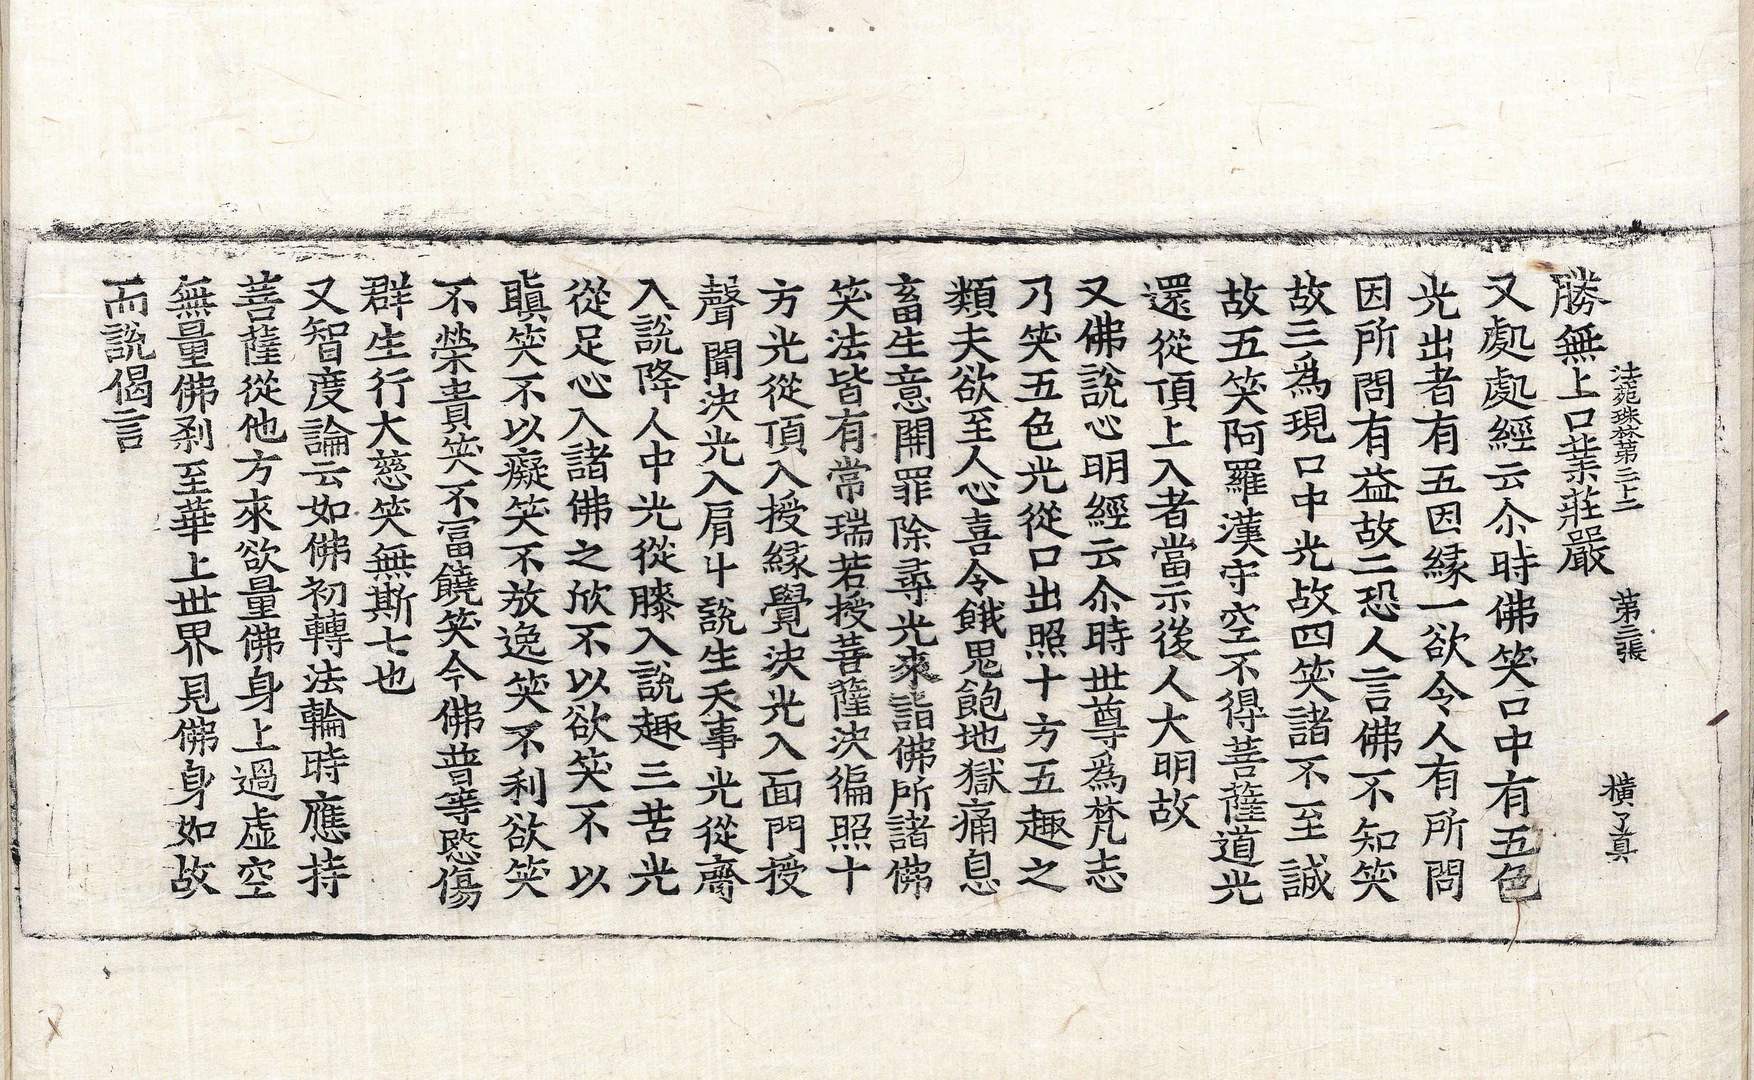 法苑珠林第二十 第二張 橫 了眞
勝無上口業莊嚴
又處處經云尒時佛笑口中有五色
光出者有五因緣一欲令人有所問
因所問有益故二恐人言佛不知笑
故三爲現口中光故四笑諸不至誠
故五笑阿羅漢守空不得菩薩道光
還從頂上入者當示後人大明故
又佛說心明經云尒時世尊爲梵志
乃笑五色光從口出照十方五趣之
類夫欲至人心喜令餓鬼飽地獄痛息
畜生意開罪除尋光來詣佛所諸佛
笑法皆有常瑞若授菩薩決徧照十
方光從頂入授緣覺決光入面門授
聲聞決光入肩斗說生天事光從齊
入說降人中光從膝入說趣三苦光
從足心入諸佛之欣不以欲笑不以
瞋笑不以癡笑不放逸笑不利欲笑
不榮貴笑不富饒笑今佛普等愍傷
群生行大慈笑無斯七也
又智度論云如佛初轉法輪時應持
菩薩從他方來欲量佛身上過虛空
無量佛刹至華上世界見佛身如故
而說偈言